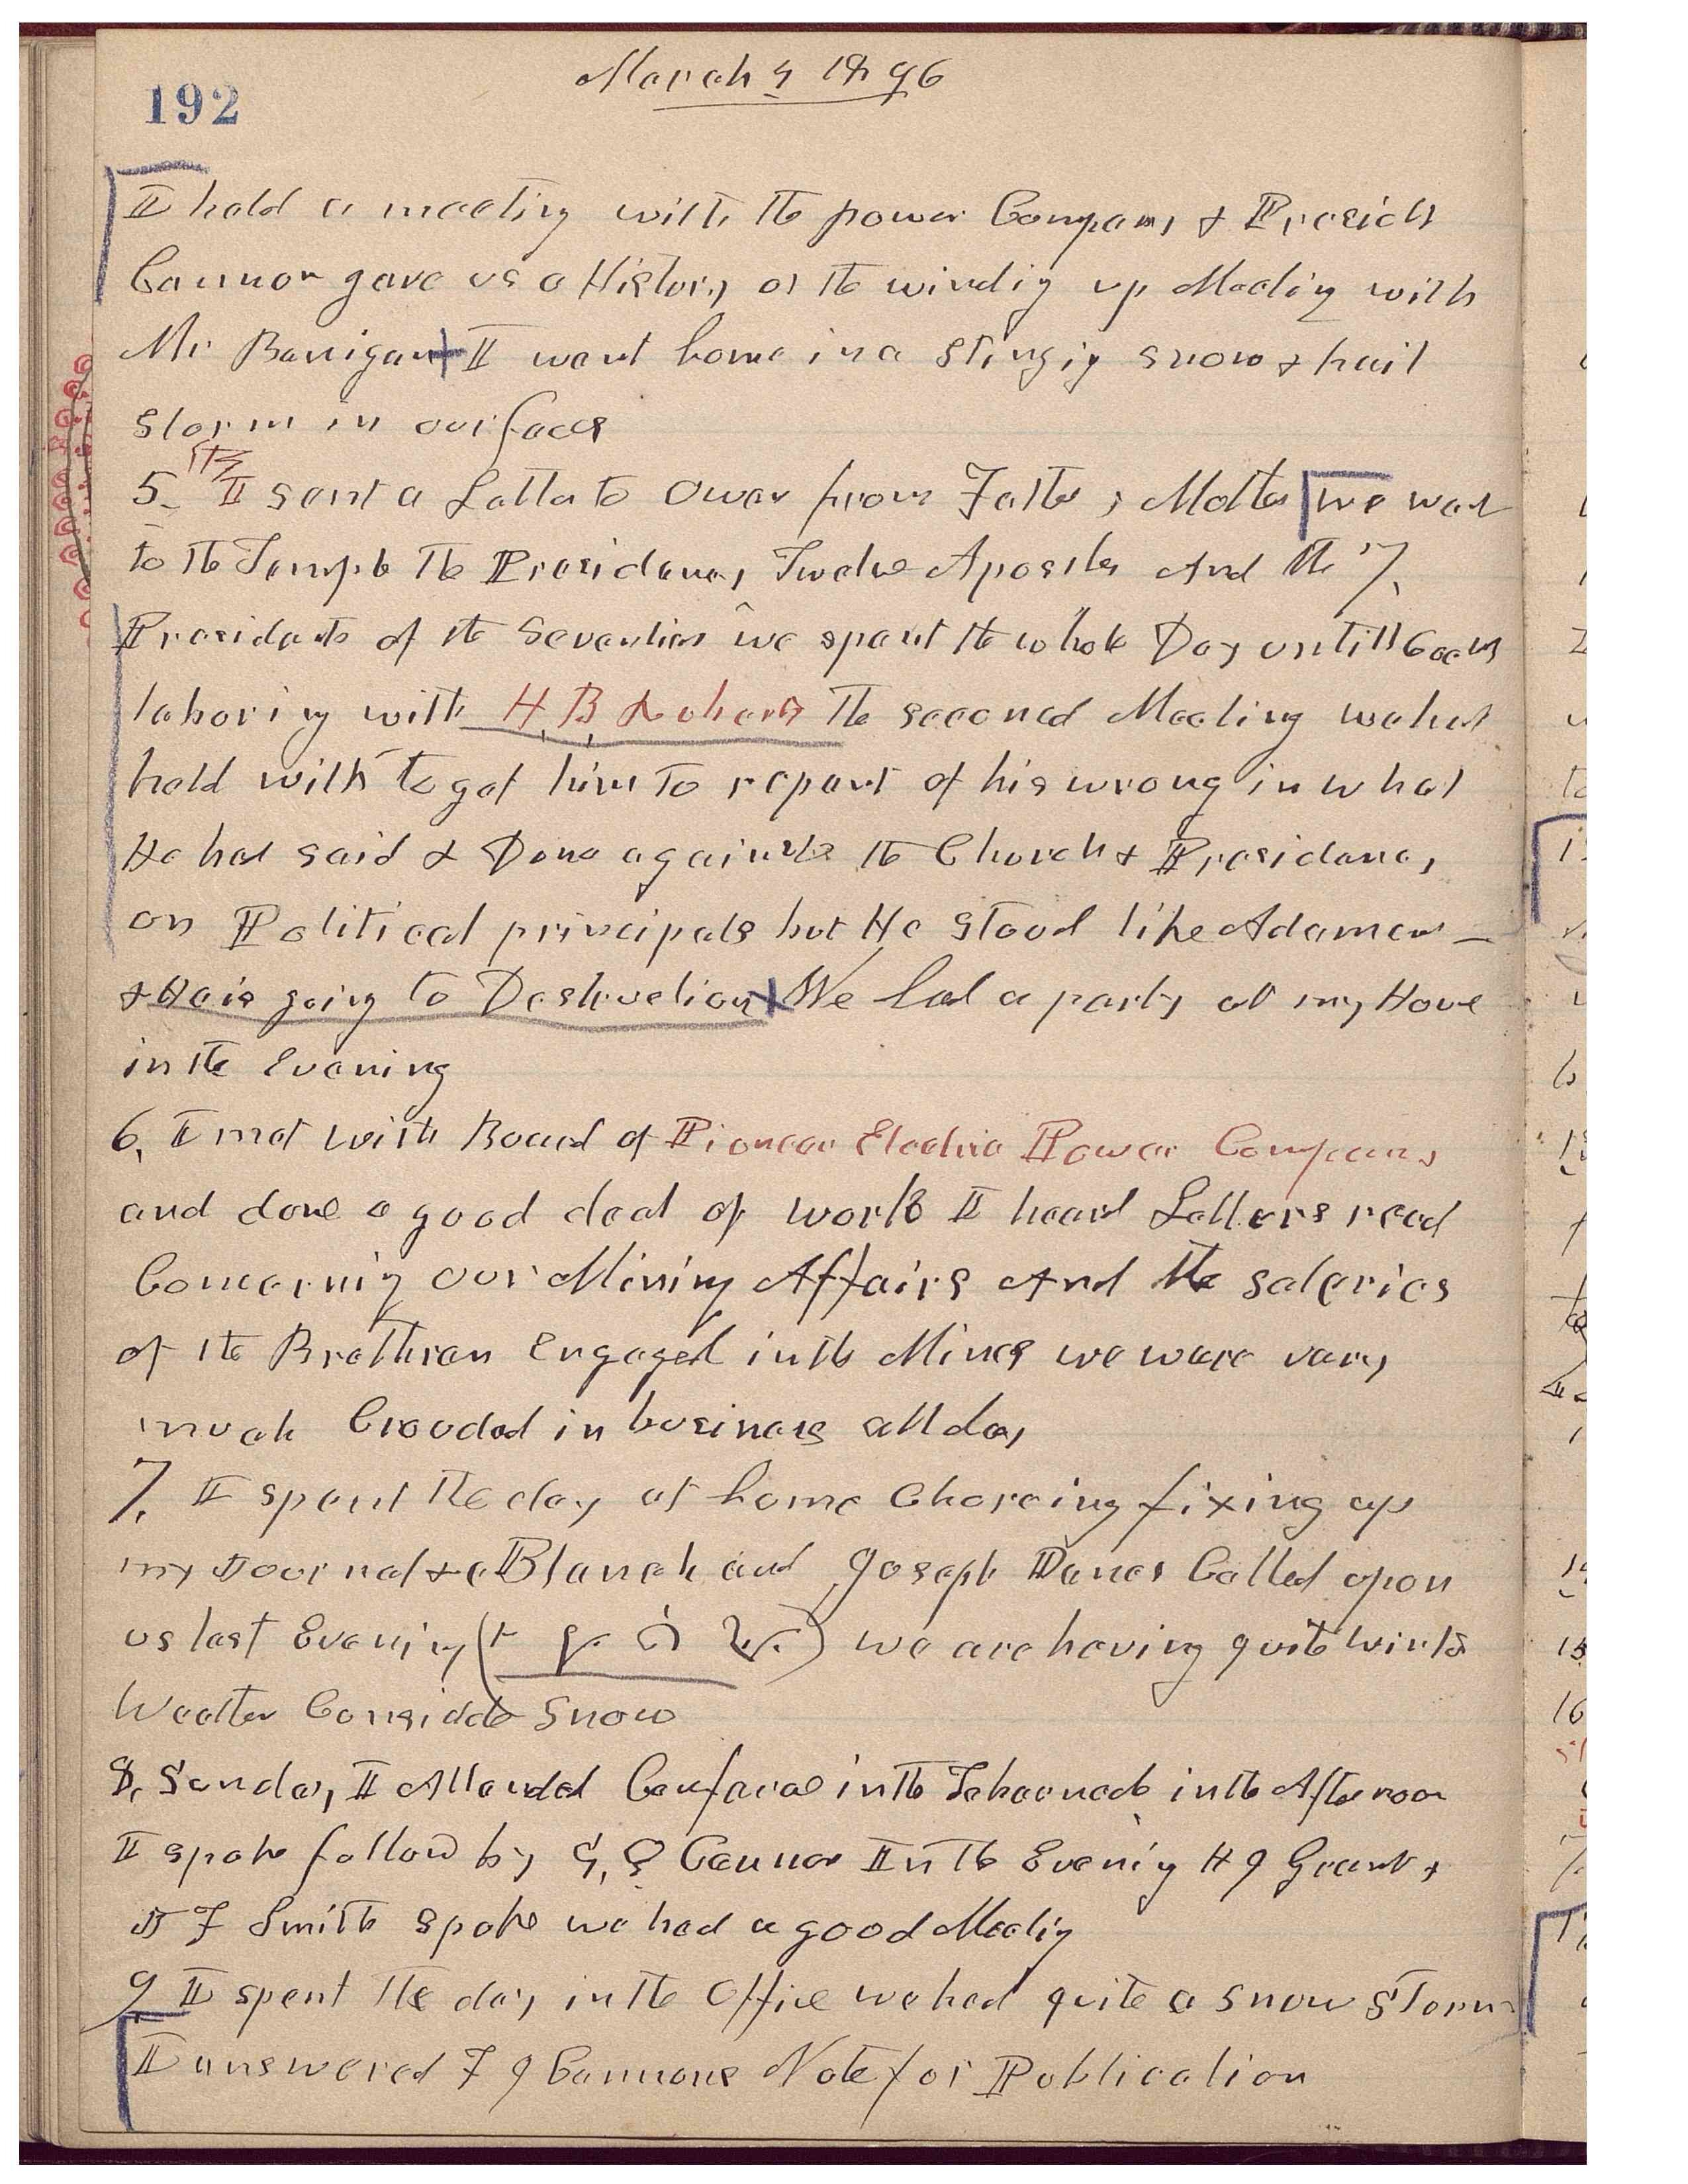 192
March 4 1896
I held a meeting with the power Company & Preside
Cannon gave us a History of the windig up Meeting with
Mr Banigan I went home in a Stingig snow & hail
storm in our faces
5th I sent a Letter to Owen from Father & Mother we went
to the Temple the Presidency Twelve Apostles And the 7
Presidents of the Seventies we spent the whole Day untill
laboring with H, B, Roberts The second Meeting we had
held with to get him to repent of his wrong in what
He had said & Done against the Church & Presidency
on Political principals but He Stood like Adamen
& He is going to Destruction We had a party at my House
in the Evening
6, I met with Board of Pioneer Electric Power Company
and done a good deal of work I heard Letters read
Concernig our Mining Affairs And the salaries
of the Brethren Engaged in the Mines we were very
much Crouded in business all day
7, I spent the day at home Choreing fixing up
my Journal & c Blanch and Joseph Danes Called upon
us last Evenig we are having quite winter
Weather Considde Snow
8, Sunday I Attended Confere in the Tabernacle in the Afternoon
I spoke follow by G, Q Cannon In the Evenig H J Grant &
J F Smith spoke we had a good Meetig
9 I spent the day in the Office we had quite a snow Storm
I answered F J Cannons Note for Publication